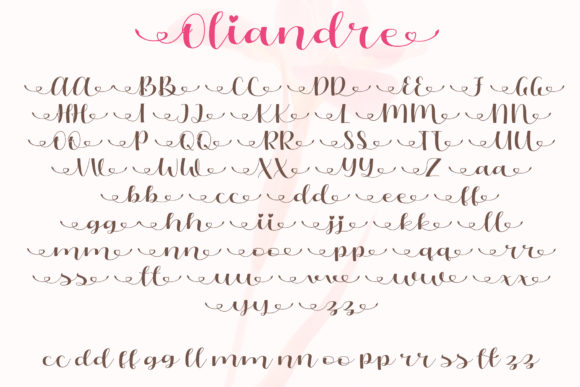 Oliandre
AA BB CC DD EE F GG
HH I JJ KK L MM NN
OO P QQ RR SS TT UU
VV WW XX YY Z aa
bb cc dd ee ff
gg hh ii jj kk ll
mm nn oo pp qq rr
ss tt uu vv ww xx
yy zz
cc dd ff gg ll mm nn oo pp rr ss tt zz